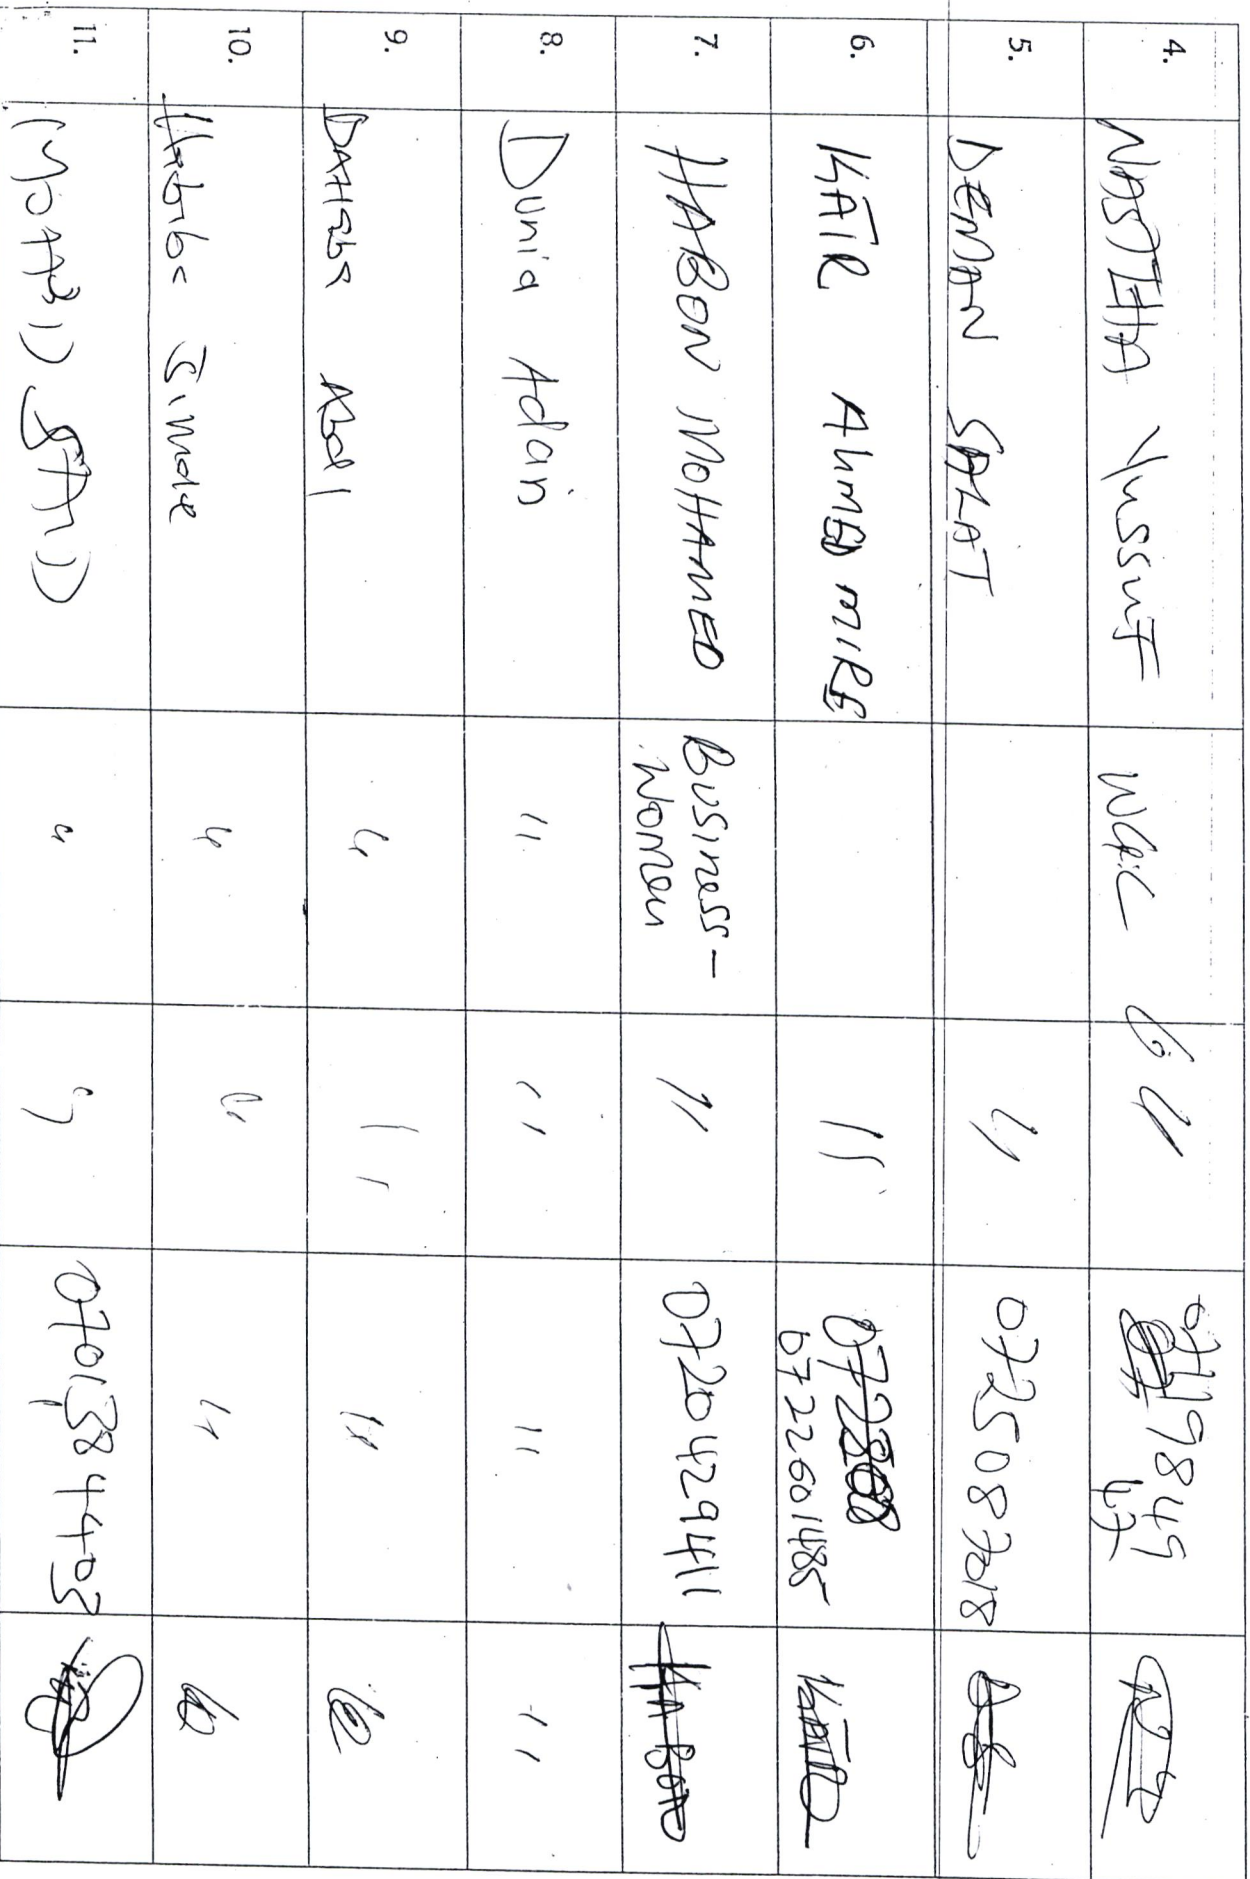 4. NASTEHA YussuF WARC 64 " 0719849
47
5. DEMAN SALAT " 0725087018
6. KATR AHMED MIRE " 0722601485 KATR
7. HABON MOHAMED Business-
Women " 0720429411 HABON
8. Dunia Adan " " " "
9. DAHABA Abdi " " "
10. Habiba Jimale " " "
11. " " 0701384403